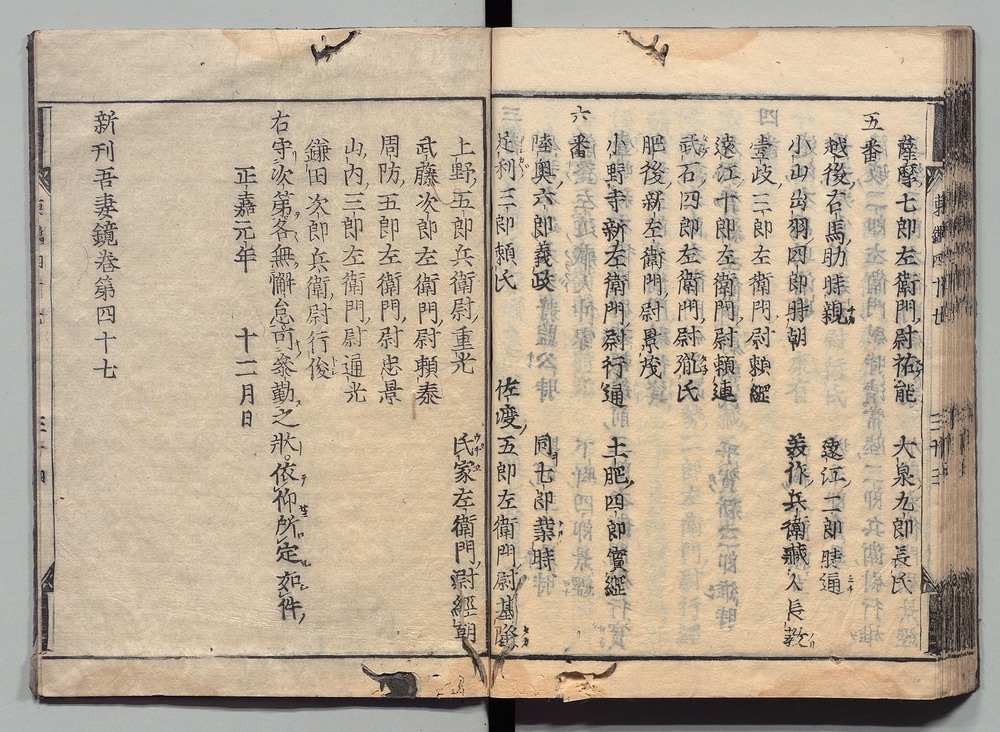 薩摩七郎左衛門尉祐能　大泉九郎長氏
五番
越後右馬助時親　遠江二郎時通
小山出羽四郎時朝　美作兵衛蔵人長教
壹岐三郎左衛門尉頼經
遠江十郎左衛門尉頼連
武石四郎左衛門尉胤氏
肥後新左衛門尉景茂
小野寺新左衛門尉行通　土肥四郎實經
六番
陸奥六郎義政　同七郎業時
足利三郎頼氏　佐渡五郎左衛門尉基隆
上野五郎兵衛尉重光　氏家左衛門尉經朝
武藤次郎左衛門尉頼泰
周防五郎左衛門尉忠景
山内三郎左衛門尉通光
鎌田次郎兵衛尉行俊
右守次第各無懈怠可參勤之狀依仰所定如件
正嘉元年　十二月日
新刊吾妻鏡巻第四十七